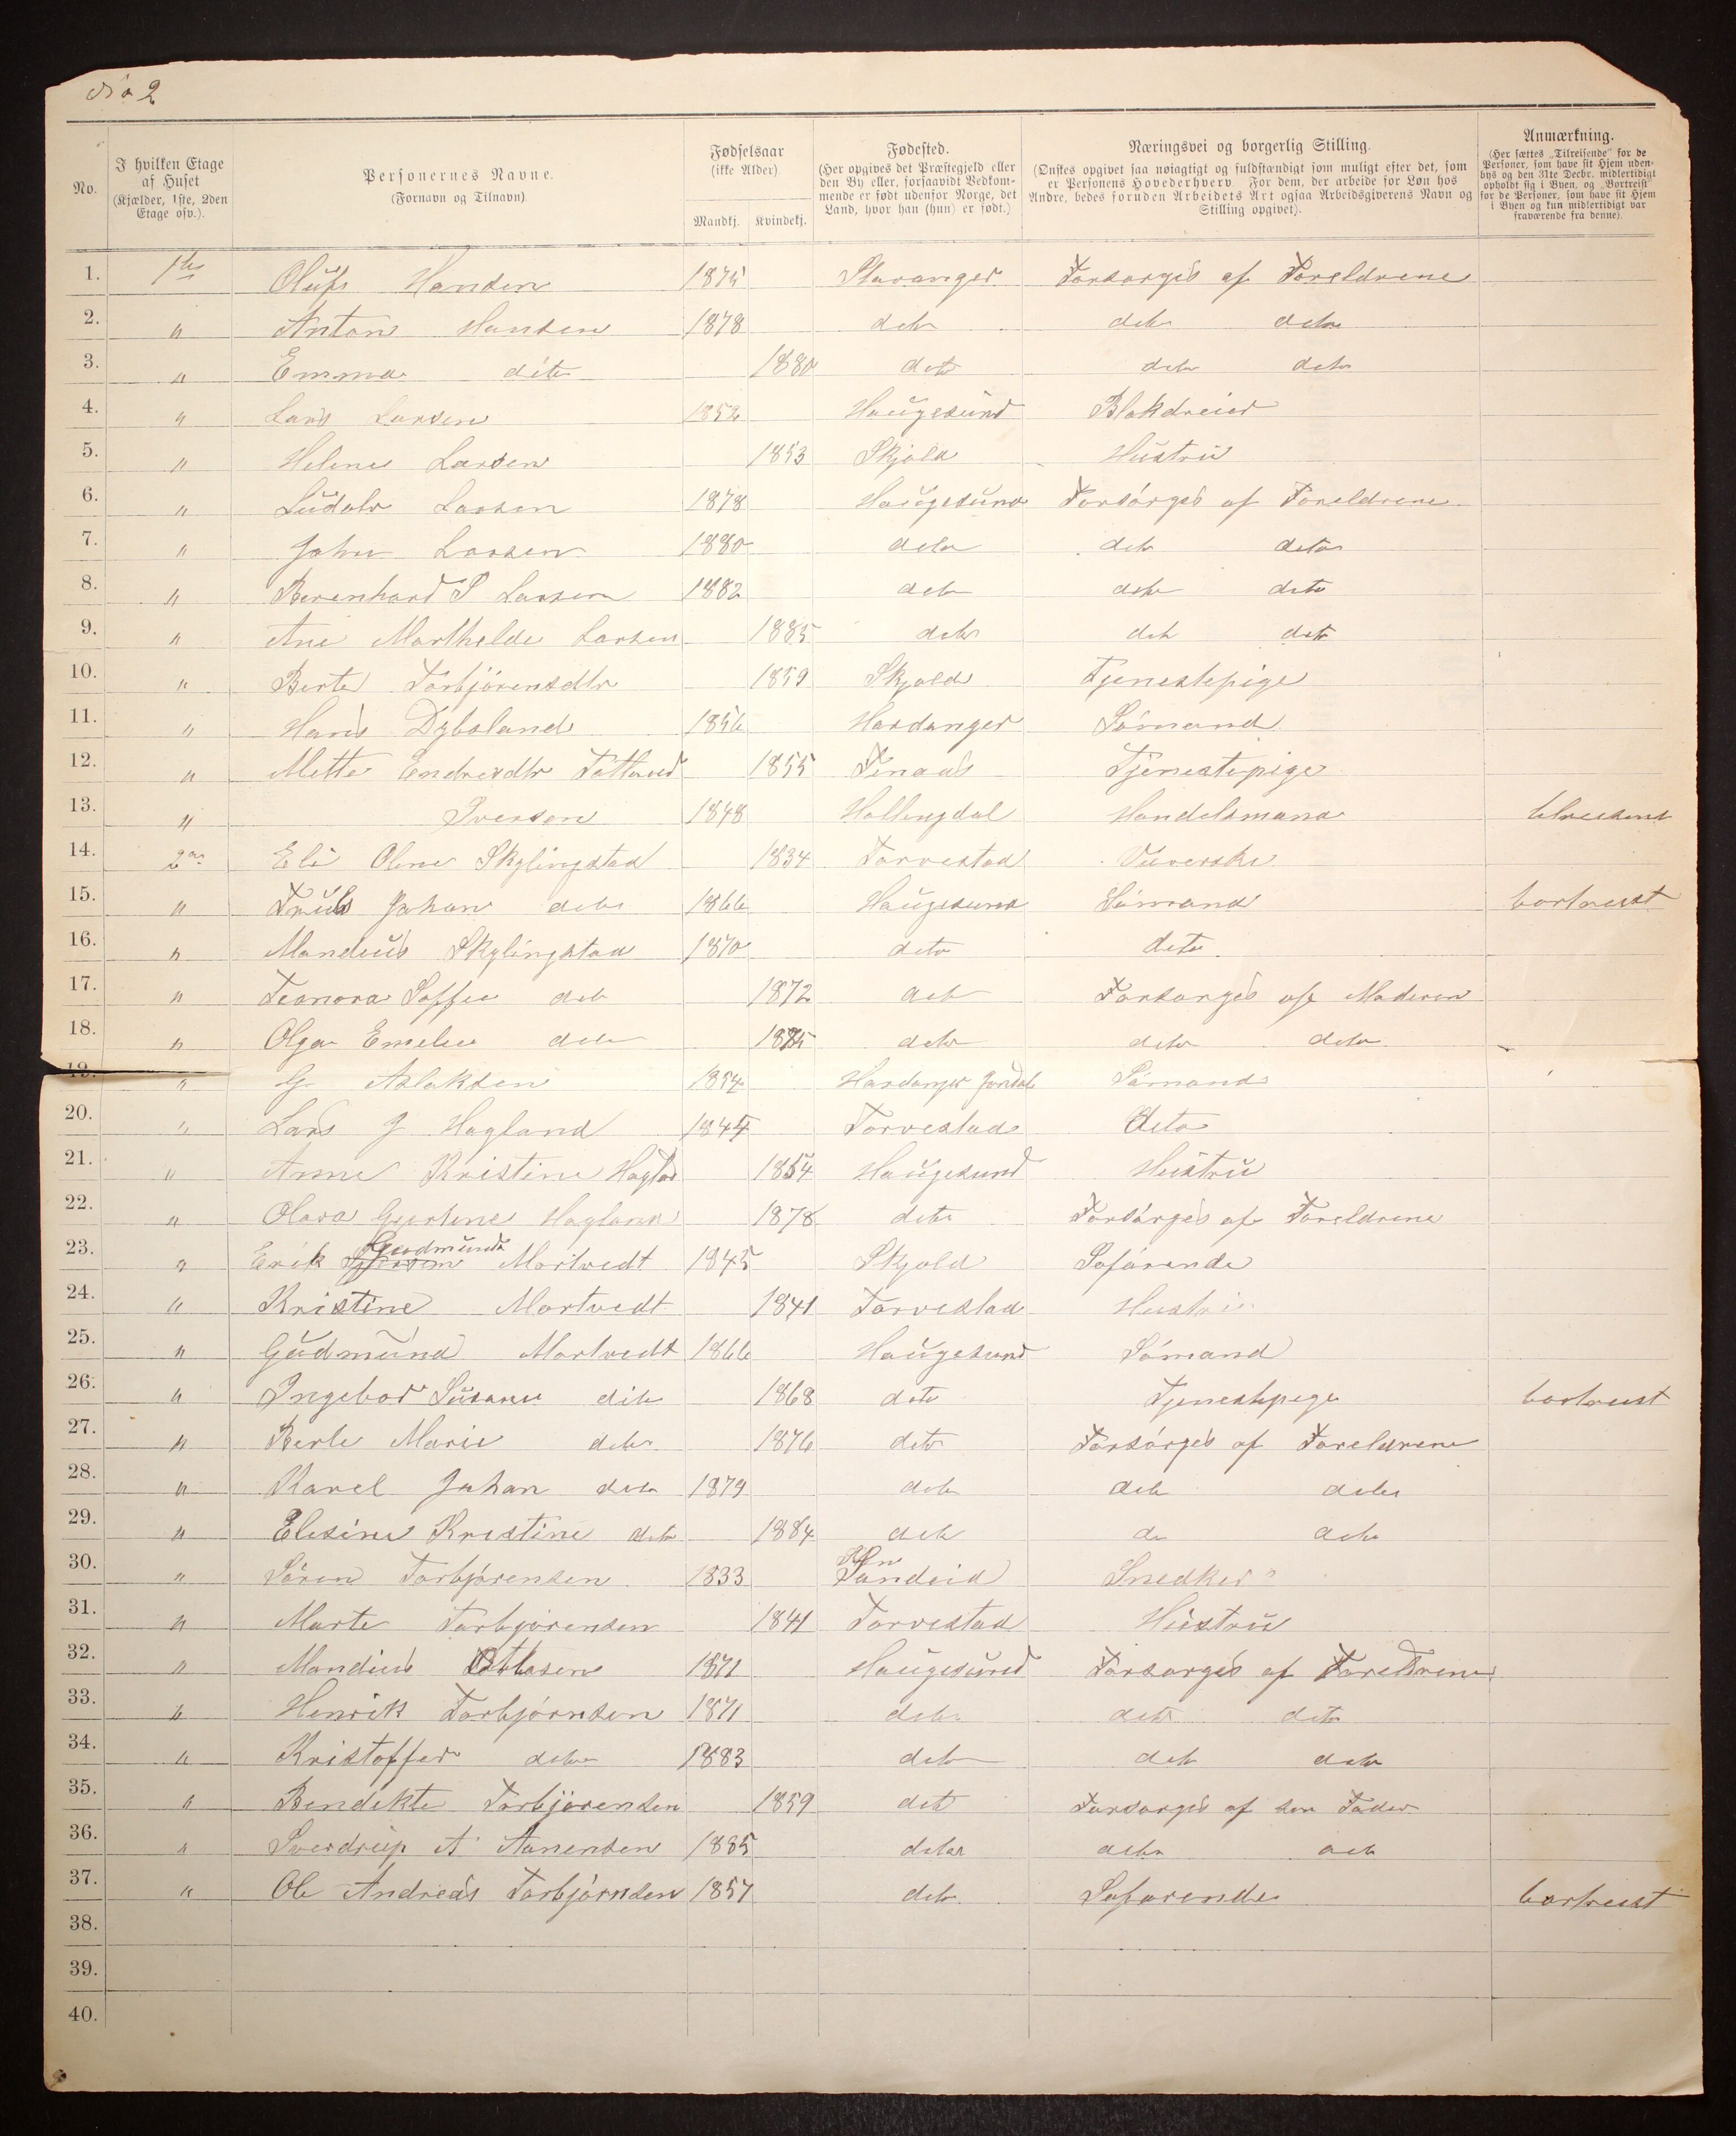 No 2
No.
I hvilken Etage af Huset (Kjælder, 1ste, 2den Etage osv.).
Personernes Navne. (Fornavn og Tilnavn)
Fødselsaar (ikke Alder).
Mandkj. Kvindekj.
Fødested. (Her opgives det Præstegjeld eller den By eller, forsaavidt Vedkommende er født udenfor Norge, det Land, hvor han (hun) er født.)
Næringsvei og borgerlig Stilling. (Ønskes opgivet saa nøiagtigt og fuldstændigt som muligt efter det, som er Personens Hovederhverv. For dem, der arbeide for Løn hos Andre, bedes foruden Arbeidets Art ogsaa Arbeidsgiverens Navn og Stilling opgivet).
Anmærkning. (Her sættes „Tilreisende" for de Personer, som have sit Hjem udenbys og den 31te Decbr. midlertidigt opholdt sig i Byen, og „Bortreist" for de Personer, som have sit Hjem i Byen og kun midlertidigt var fraværende fra denne).
1. 1ste Olufs Hansen 1875 Stavanger Forsørges af Foreldrene
2. " Anton Hansen 1878 deto deto deto
3. " Emma dito 1880 deto deto deto
4. " Lars Larsen 1852 Haugesund Blokdreier
5. " Helene Larsen 1853 Skjold Hustru
6. " Ludolv Larsen 1878 Haugesund Forsørges af Foreldrene
7. " John Larsen 1880 deto deto deto
8. " Berenhard S Larsen 1882 deto deto deto
9. " Ane Marthelde Larsen 1885 deto deto deto
10. " Berte Torbjørensdtr 1859 Skjold Tjenestepige
11. " Hans Dybsland 1856 Hardanger Sømand
12. " Mette Endresdtr Tatland 1855 Finaas Tjenestepige
13. " Iversen 1848 Hallingdal Handelsmand
14. 2den Eli Oline Skylingstad 1834 Torvestad Væverske
15. " Truls Johan deto 1866 Haugesund Sømand bortreist
16. " Mandius Skylingstad 1870 deto deto
17. " Leonora Soffie deto 1872 deto Forsørges af Moderen
18. " Olga Emelie deto 1875 deto deto deto
19. " G. Aslaksen 1854 Hardanger Jondal Sømand
20. " Lars J Hagland 1844 Torvestad deto
21. " Anne Kristine Hagland 1854 Haugesund Hustru
22. " Olava Gurine Hagland 1878 deto Forsørges af Foreldrene
23. " Erik Gudmunds Mortvedt 1845 Skjold Søfarende
24. " Kristine Mortvedt 1841 Torvestad Hustru
25. " Gudmund Mortvedt 1866 Haugesund Sømand
26. " Ingebor Susane dito 1868 deto Tjenestepige bortreist
27. " Berte Marie deto 1876 deto Forsørges af Foreldrene
28. " Karel Johan deto 1879 deto deto deto
29. " Elesine Kristine deto 1884 deto de deto
30. " Søren Torbjørensen 1833 Sandeid Snedker
31. " Marte Torbjørensen 1841 Torvestad Hustru
32. " Mandius Ottesen 1871 Haugesund Forsørges af Foreldrene
33. " Henrik Torbjørnsen 1871 deto deto deto
34. " Kristoffer deto 1883 deto deto deto
35. " Bendekte Torbjørensen 1859 deto Forsørges af sen Fader
36. " Sverdrup A Aanensen 1885 deto deto deto
37. " Ole Andreas Torbjørnsen 1857 deto Søfarende bortreist
38.
39.
40.